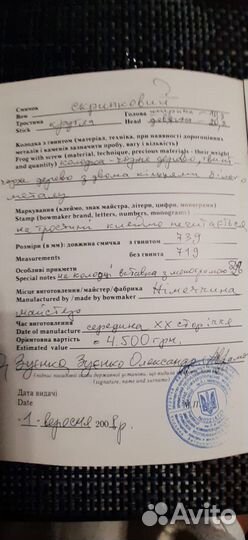 Смичок скрипковий
Bow
Тростина кругла
Stick
Голова
Head
Колодка з гвинтом (матеріал, техніка, при наявності дорогоцінних
металів і каменів зазначити пробу, вагу і кількість)
Frog with screw (material, technique, precious materials - their weight
and quantity) колодка - чорне дерево, гвинт -
чорне дерево з двома кінцями білого
металу
Маркування (клеймо, знак майстра, літери, цифри, монограми)
Stamp (bowmaker brand, letters, numbers, monograms)
на тростині клеймо не читається
Розміри (в мм): довжина смичка з гвинтом 739
Measurements без гвинта 719
Особливі прикмети
Special notes на колодці вставка з монограмою
Місце виготовлення/майстер/фабрика Німеччина
Manufactured by / made by bowmaker
майстер
Час виготовлення середина ХХ сторіччя
Date of manufacture
Орієнтовна вартість 4.500 грн.
Estimated value
Зуєнко Олександр
(signature, name and surname)
Дата видачі
Date
1 вересня 200 р.
Avito